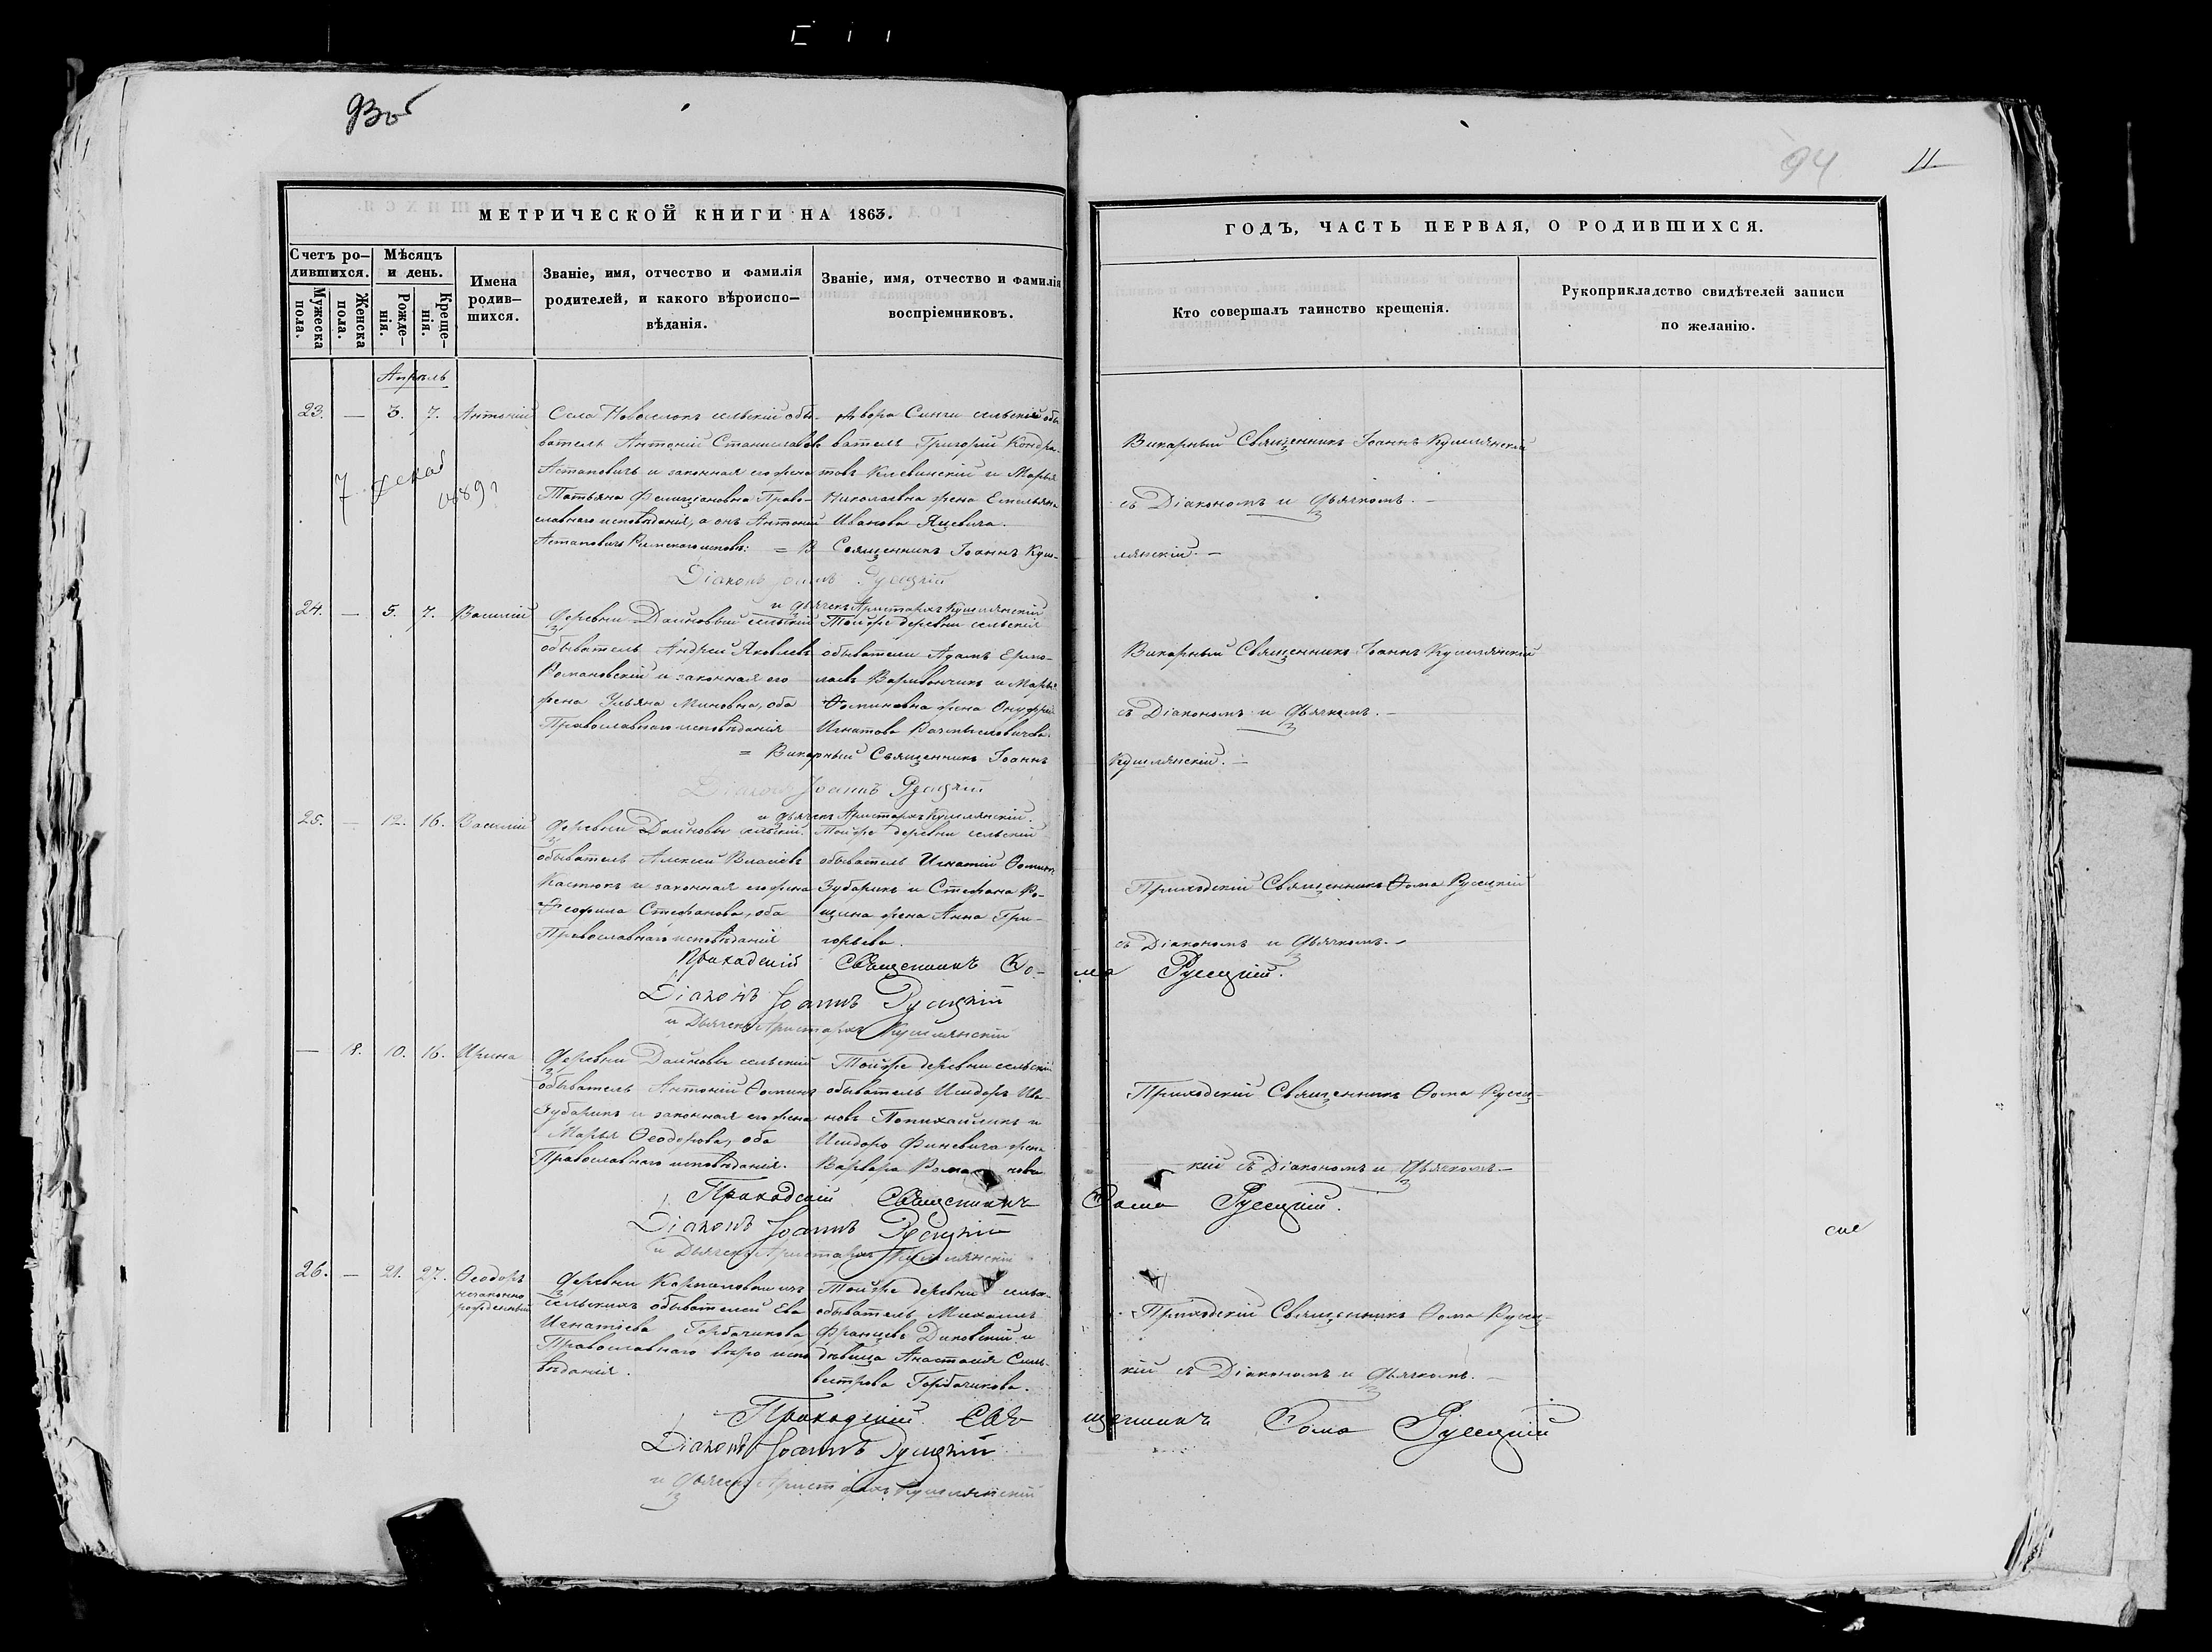 94
11
МЕТРИЧЕСКОЙ КНИГИ НА 1863.
ГОДЪ, ЧАСТЬ ПЕРВАЯ, О РОДИВШИХСЯ.
Счетъ ро-
дившихся.
Мужеска
пола.
Женска
пола.
Мѣсяцъ
и день.
Рожде-
нія.
Креще-
нія.
Имена
родив-
шихся.
Званіе, имя, отчество и фамилія
родителей, и какого вѣроиспо-
вѣданія.
Званіе, имя, отчество и фамилія
воспріемниковъ.
Кто совершалъ таинство крещенія.
Рукоприкладство свидѣтелей записи
по желанію.
Апрѣль
23. — 3. 7. Антоній
Села Новоселокъ сельскій обы-
ватель Антоній Станиславовъ
Астаповичъ и законная его жена
Татьяна Фелиціановна Право-
славнаго исповѣданія, а онъ Антоній
Астаповичъ Римскаго исповѣ:
Двора Синги сельскій обы
ватель Григорій Кондра-
товъ Клевинскій и Марья
Николаевна жена Емельяна
Иванова Яцевича.
= В Священникъ Іоаннъ Куш-
лянскій. —
Діаконъ Іоаннъ Русецкій
и Дьячекъ Аристархъ Кушлянскій
Викарный Священникъ Іоаннъ Кушлянскій
съ Діакономъ и Дьячкомъ. —
7 Декаб
24. — 5. 7. Василій
Деревни Дайновы сельскій
обыватель Андрей Яковлевъ
Романовскій и законная его
жена Ульяна Миновна, оба
Православнаго исповѣданія
Тойже деревни сельскія
обыватели Адамъ Ермо-
лаевъ Варивончикъ и Марья
Ѳоминовна жена Онуфрія
Игнатова
= Викарный Священникъ Іоаннъ
Кушлянскій. —
Діаконъ Іоаннъ Русецкій
и Дьячекъ Аристархъ Кушлянскій.
Викарный Священникъ Іоаннъ Кушлянскій
съ Діакономъ и Дьячкомъ. —
25. — 12. 16. Василій
Деревни Дайновы сельскій
обыватель Алексей Власіевъ
Костюкъ и законная его жена
Ѳеофила Стефанова, оба
Православнаго исповѣданія
Тойже деревни сельскій
обыватель Игнатій Ѳоминъ
Зубарикъ и Стефана Ро-
щина жена Анна Гри-
горьева.
Приходскій Священникъ Ѳома Русецкій
съ Діакономъ и Дьячкомъ. —
Приходскій Священникъ Ѳо-
ма Русецкій.
Діаконъ Іоаннъ Русецкій
и Дьячекъ Аристархъ Кушлянскій
— 18. 10. 16. Ирина
Деревни Дайновы сельскій
обыватель Антоній Ѳоминъ
Зубарикъ и законная его жена
Марья Ѳеодорова, оба
Православнаго исповѣданія.
Тойже деревни сельскій
обыватель Исидоръ Ива-
новъ Попихайликъ и
Исидора Финевича жена
Варвара Романова
Приходскій Священникъ Ѳома Русец-
кій съ Діакономъ и Дьячкомъ. —
Приходскій Священникъ Ѳома Русецкій.
Діаконъ Іоаннъ Русецкій
и Дьячекъ Аристархъ Кушлянскій
сие
26. — 21. 27. Ѳеодоръ
незаконно
рожденный
Деревни изъ
сельскихъ обывателей Ева
Игнатіева Горбачикова
Православнаго вѣро испо
вѣданія.
Тойже деревни сельск.
обыватель Михаилъ
Францевъ Диковскій и
дѣвица Анастасія Силь-
вестрова Горбачикова.
Приходскій Священникъ Ѳома Русец-
кій съ Діакономъ и Дьячкомъ. —
Приходскій Свя-
щенникъ Ѳома Русецкій
Діаконъ Іоаннъ Русецкій
и Дьячекъ Аристархъ Кушлянскій